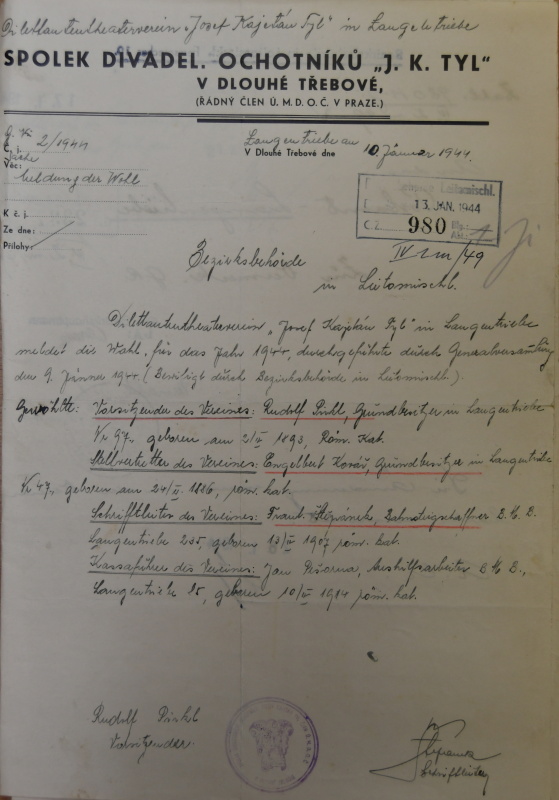 Dilettantentheaterverein „Josef Kajetán Tyl" in Langentriebe
SPOLEK DIVADEL. OCHOTNÍKŮ „J. K. TYL"
V DLOUHÉ TŘEBOVÉ,
(ŘÁDNÝ ČLEN Ú. M. D. O. Č. V PRAZE.)
Č. j. 2/1944
Langentriebe am
V Dlouhé Třebové dne 10. Jänner 1944.
Sache
Věc:
Meldung der Wahl
K č. j.
Ze dne:
Přílohy:
Leitomischl.
13. JAN. 1944
980
Bezirksbehörde
in Leitomischl.
Dilettantentheaterverein „Josef Kajetán Tyl" in Langentriebe
meldet die Wahl, für das Jahr 1944, durchgeführte durch Generalversammlung
den 9. Jänner 1944 (Bewiligt durch Bezirksbehörde in Leitomischl).
Gewählte: Vorsitzender des Vereines: Rudolf Grundbesitzer in Langentriebe
Nr 97, geboren am 1893, Röm. Kat.
Stellvertretter des Vereines: Engelbert Kovář, Grundbesitzer in Langentriebe
Nr 47, geboren am röm. kat.
Schriftleiter des Vereines: Frant. Štěpánek, Bahnsteigschaffner B. M. B.
Langentriebe 235, geboren 1907 röm. kat.
Kassaführer des Vereines: Jan Aushilfsarbeiter B. M. B.,
Langentriebe geboren 1914 röm. kat.
Rudolf
Vorsitzender
Schriftleiter